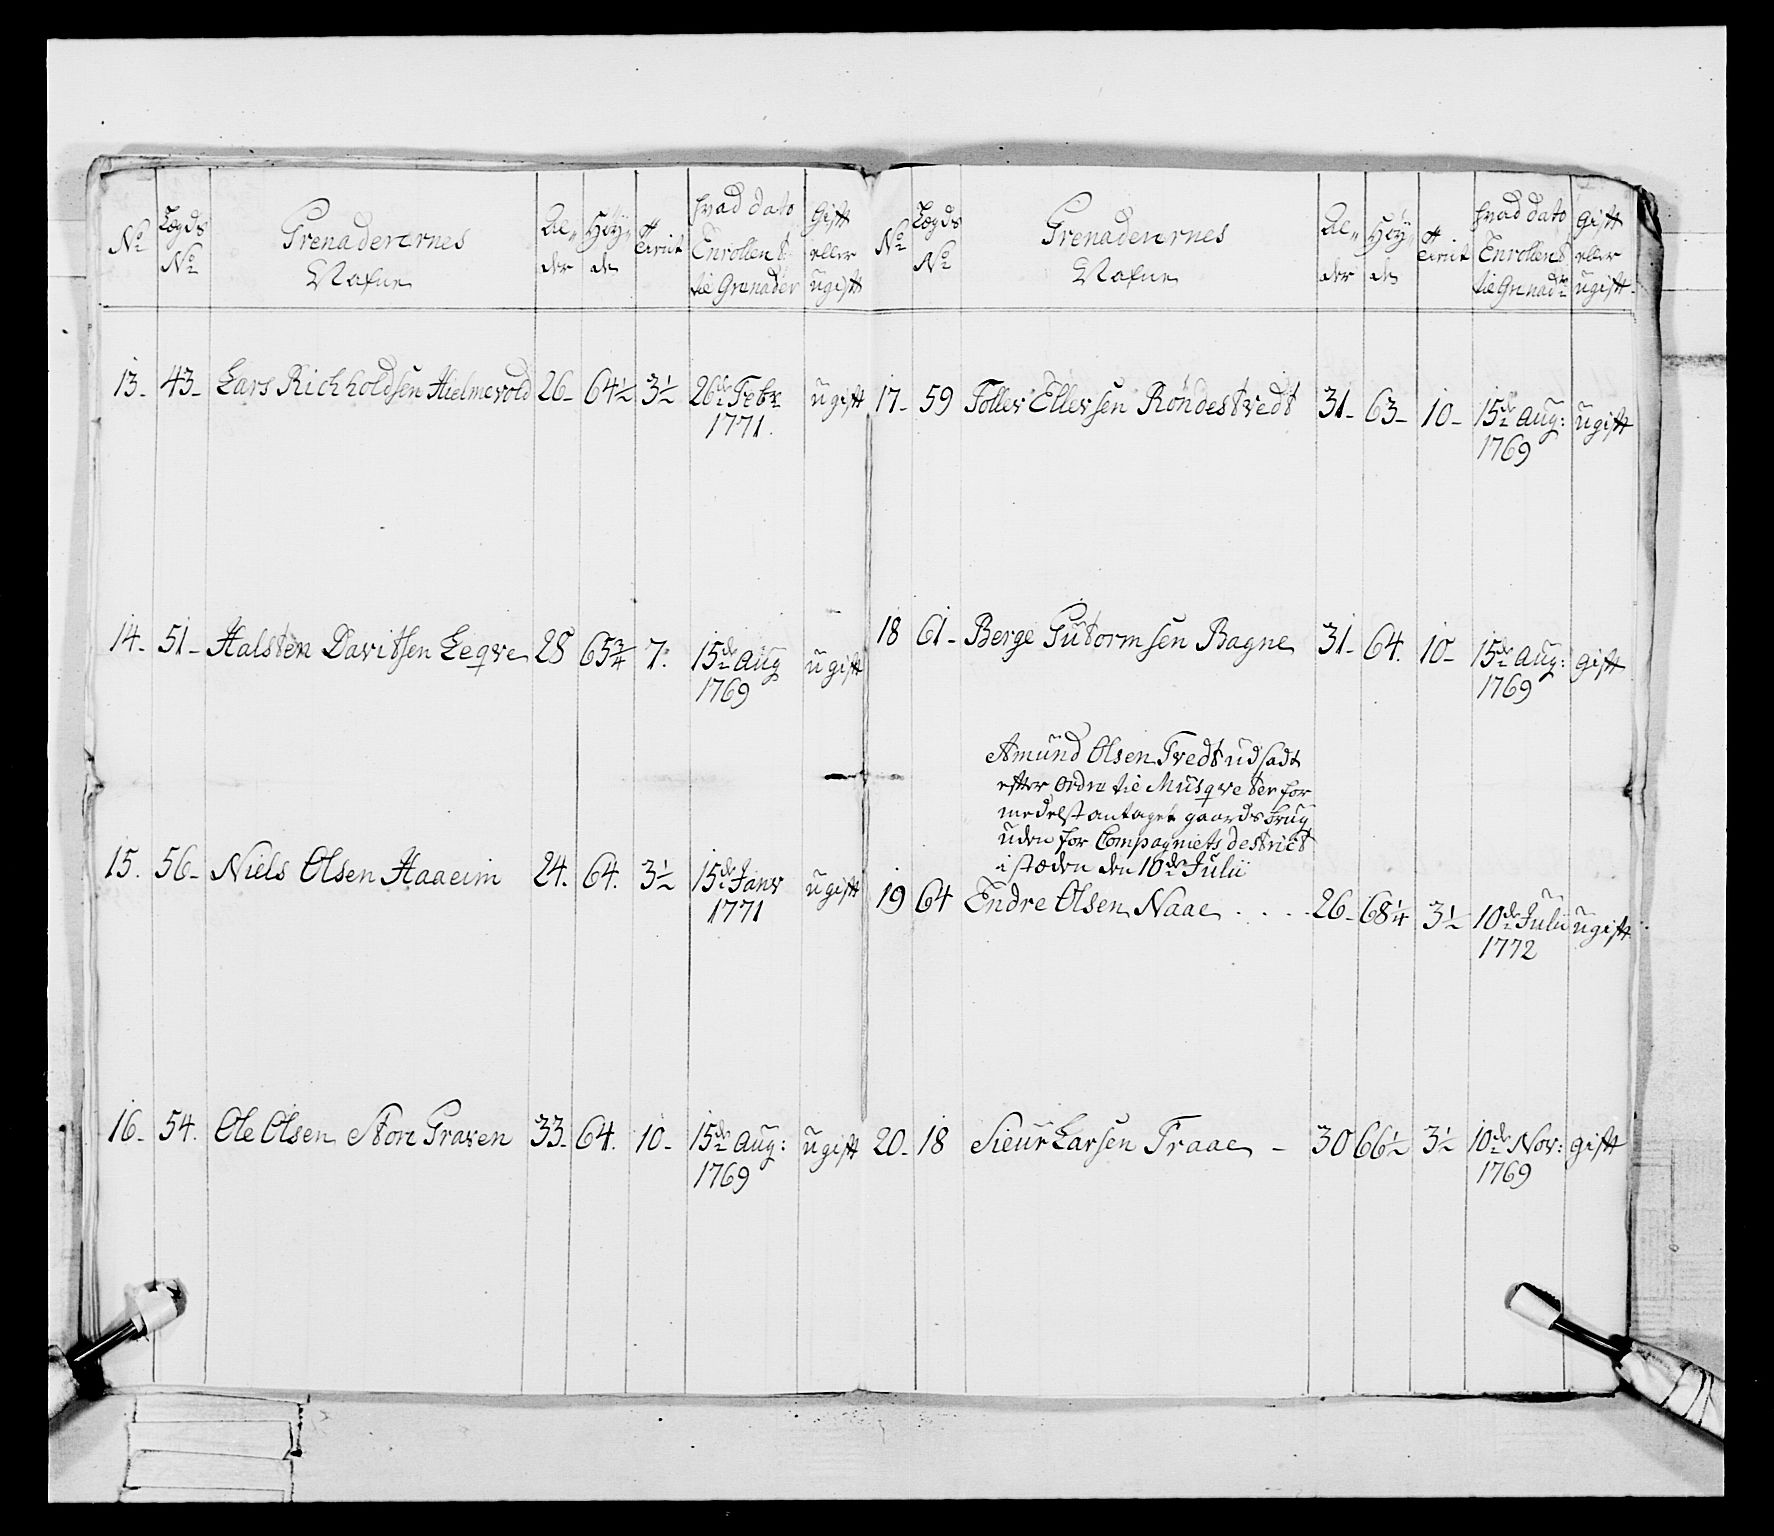 No Lægds No Grenaderernes Nafne Al„der Höy„de Hvad dato Enrollert til Grenader Gift eller ugift
13- 43- Lars Richholdsen Hielmevold 26- 64½ 3½ 26de Febr: 1771. ugift
14- 51- Halsten Davitsen Leqve 28 65¾ 7. 15de Aug 1769 ugift
15. 56- Niels Olsen Haaeim 24. 64. 3½ 15de Janv 1771 ugift
16- 54. Ole Olsen Store Graven 33- 64. 10- 15de Aug: 1769 ugift
No Lægds No Grenaderernes Nafne Al„der Höy„de Hvad dato Enrollert til Grenadr Gift eller ugift
17- 59 Toller Ellersen Röndestvedt 31- 63- 10- 15de Aug: 1769 ugift
18 61- Berge Gutormsen Bagne 31- 64. 10- 15de Aug: 1769 gift
Amund Olsen Tvedt udsadt
efter Ordre til Musqveter for
medelst antaget gaards brug
uden for Compagniets destrict
i stæden den 10de Julii
19 64 Endre Olsen Naae 26- 68¼ 3½ 10de Julii 1772 ugift
20- 18 Sieur Larsen Traae - 30 66½ 3½ 10de Nov: 1769 gift